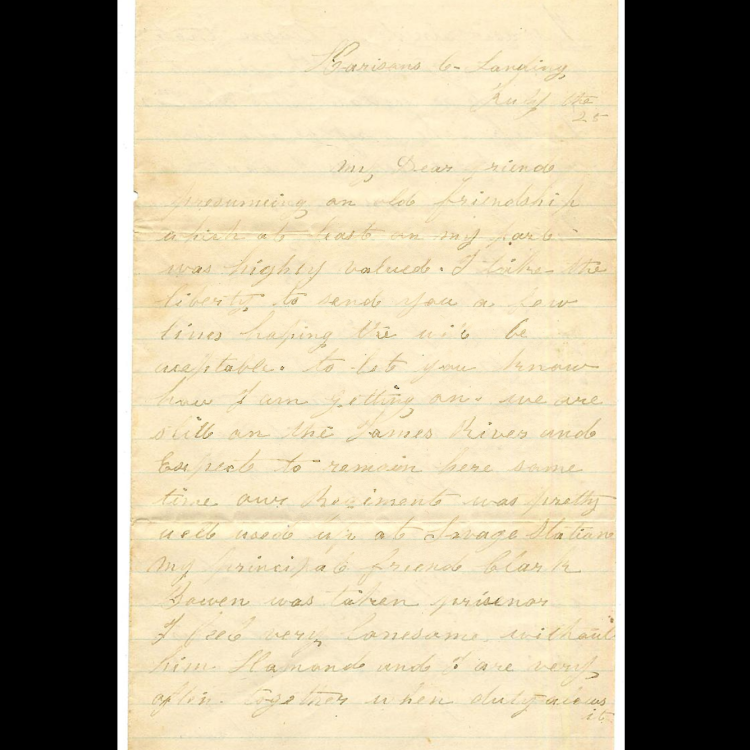 Harisons C- Landing
July the
25
My Dear Friend
presumeing on old friendship
which at least on my part
was highly valued. I take the
liberty to send you a few
lines hoping the will be
aceptable. to let you know
how I am getting on. we are
still on the James River and
Expect to remain here some
time our Regiment was pretty
well used up at Savage Station
My principal friend Clark
Bowen was taken prisinor
I feel very lonesome without
him. Hamond and I are very
often together when duty alows
it